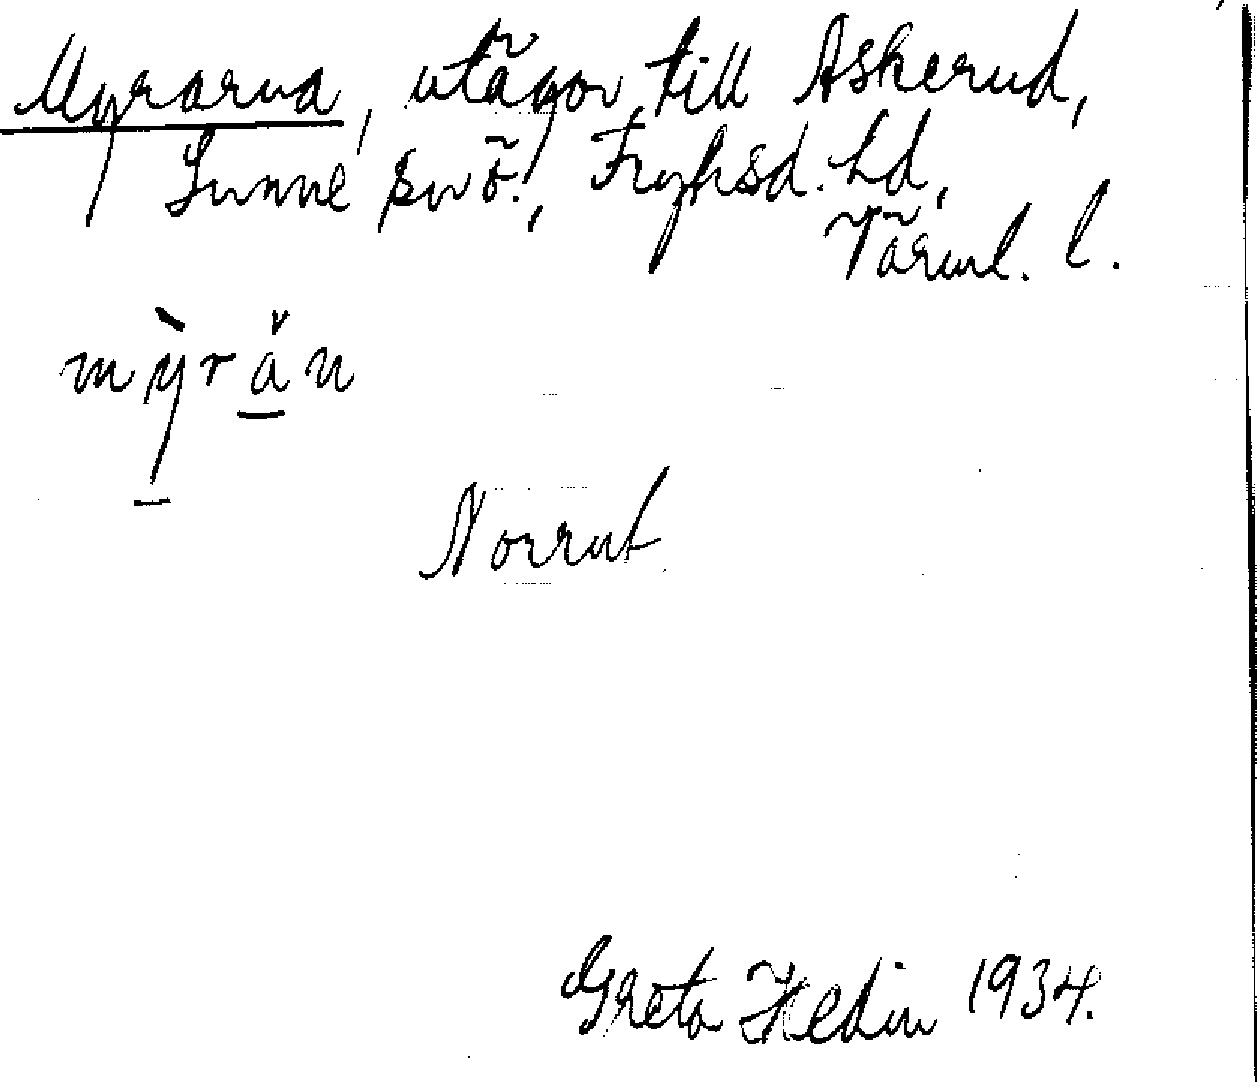 Myrarna, utägor till Askerud,
Sunne sn ö., Fryksd. hd,
Värml. l.
mỳrǎn
Norrut
Greta Hedin 1934.